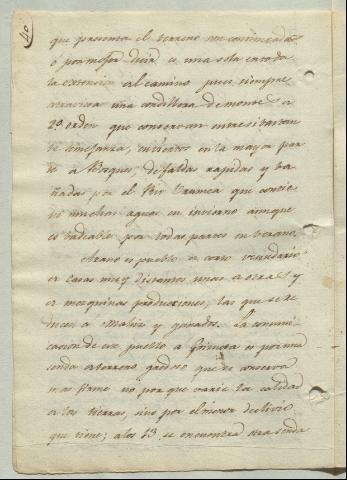 40
que presenta el terreno son continuadas
o por mejor decir es una sola en toda
la extension del camino pues siempre
atraviesa una cordillera de montes de
2º orden que conservan entre si bastan
te semejanza, cubiertos en la mayor par
te de Bosques, de faldas rapidas y ba
ñadas por el Rio Urumea que contie
ne muchas aguas en invierno aunque
es vadeable por todas partes en verano.
Arano es pueblo de corto vecindario
de casas muy distantes unas de otras y
de mezquinas producciones, las que se re
ducen a Maiz y ganados. La comuni
cacion de este pueblo a Goizueta es por una
senda de terreno gredoso que se conserva
mas firme no por que varie la calidad
de las tierras, sino por el menor declivio
que tiene; a los 13' se encuentra otra senda